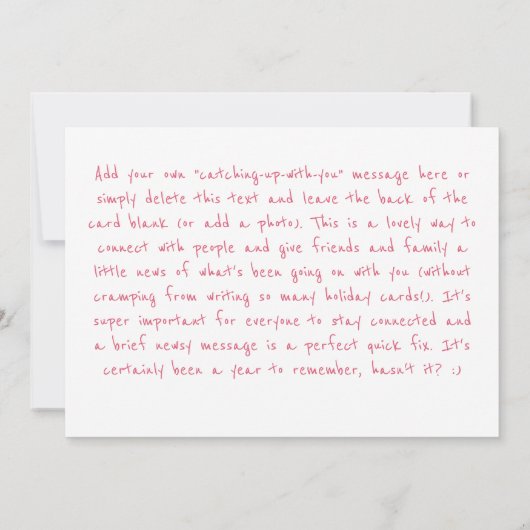 Add your own "catching-up-with-you" message here or
simply delete this text and leave the back of the
card blank (or add a photo). This is a lovely way to
connect with people and give friends and family a
little news of what's been going on with you (without
cramping from writing so many holiday cards!). It's
super important for everyone to stay connected and
a brief newsy message is a perfect quick fix. It's
certainly been a year to remember, hasn't it? :)